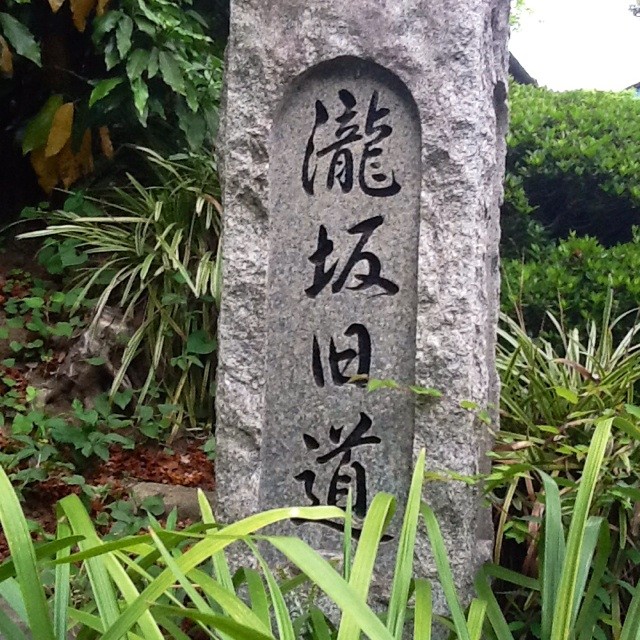 瀧坂旧道